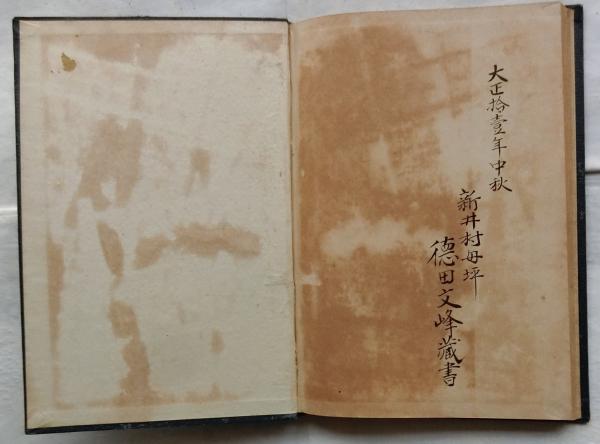 大正拾壹年中秋
新井村母坪
德田文峰藏書